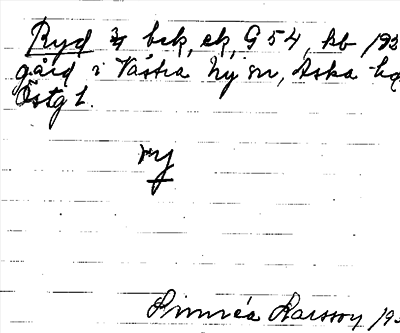 Ryd ¾ bek, ek, G 54, kb 193
gård i Västra Ny sn, Aska hd
Östg l.
ry
Linnéa Larsson 193